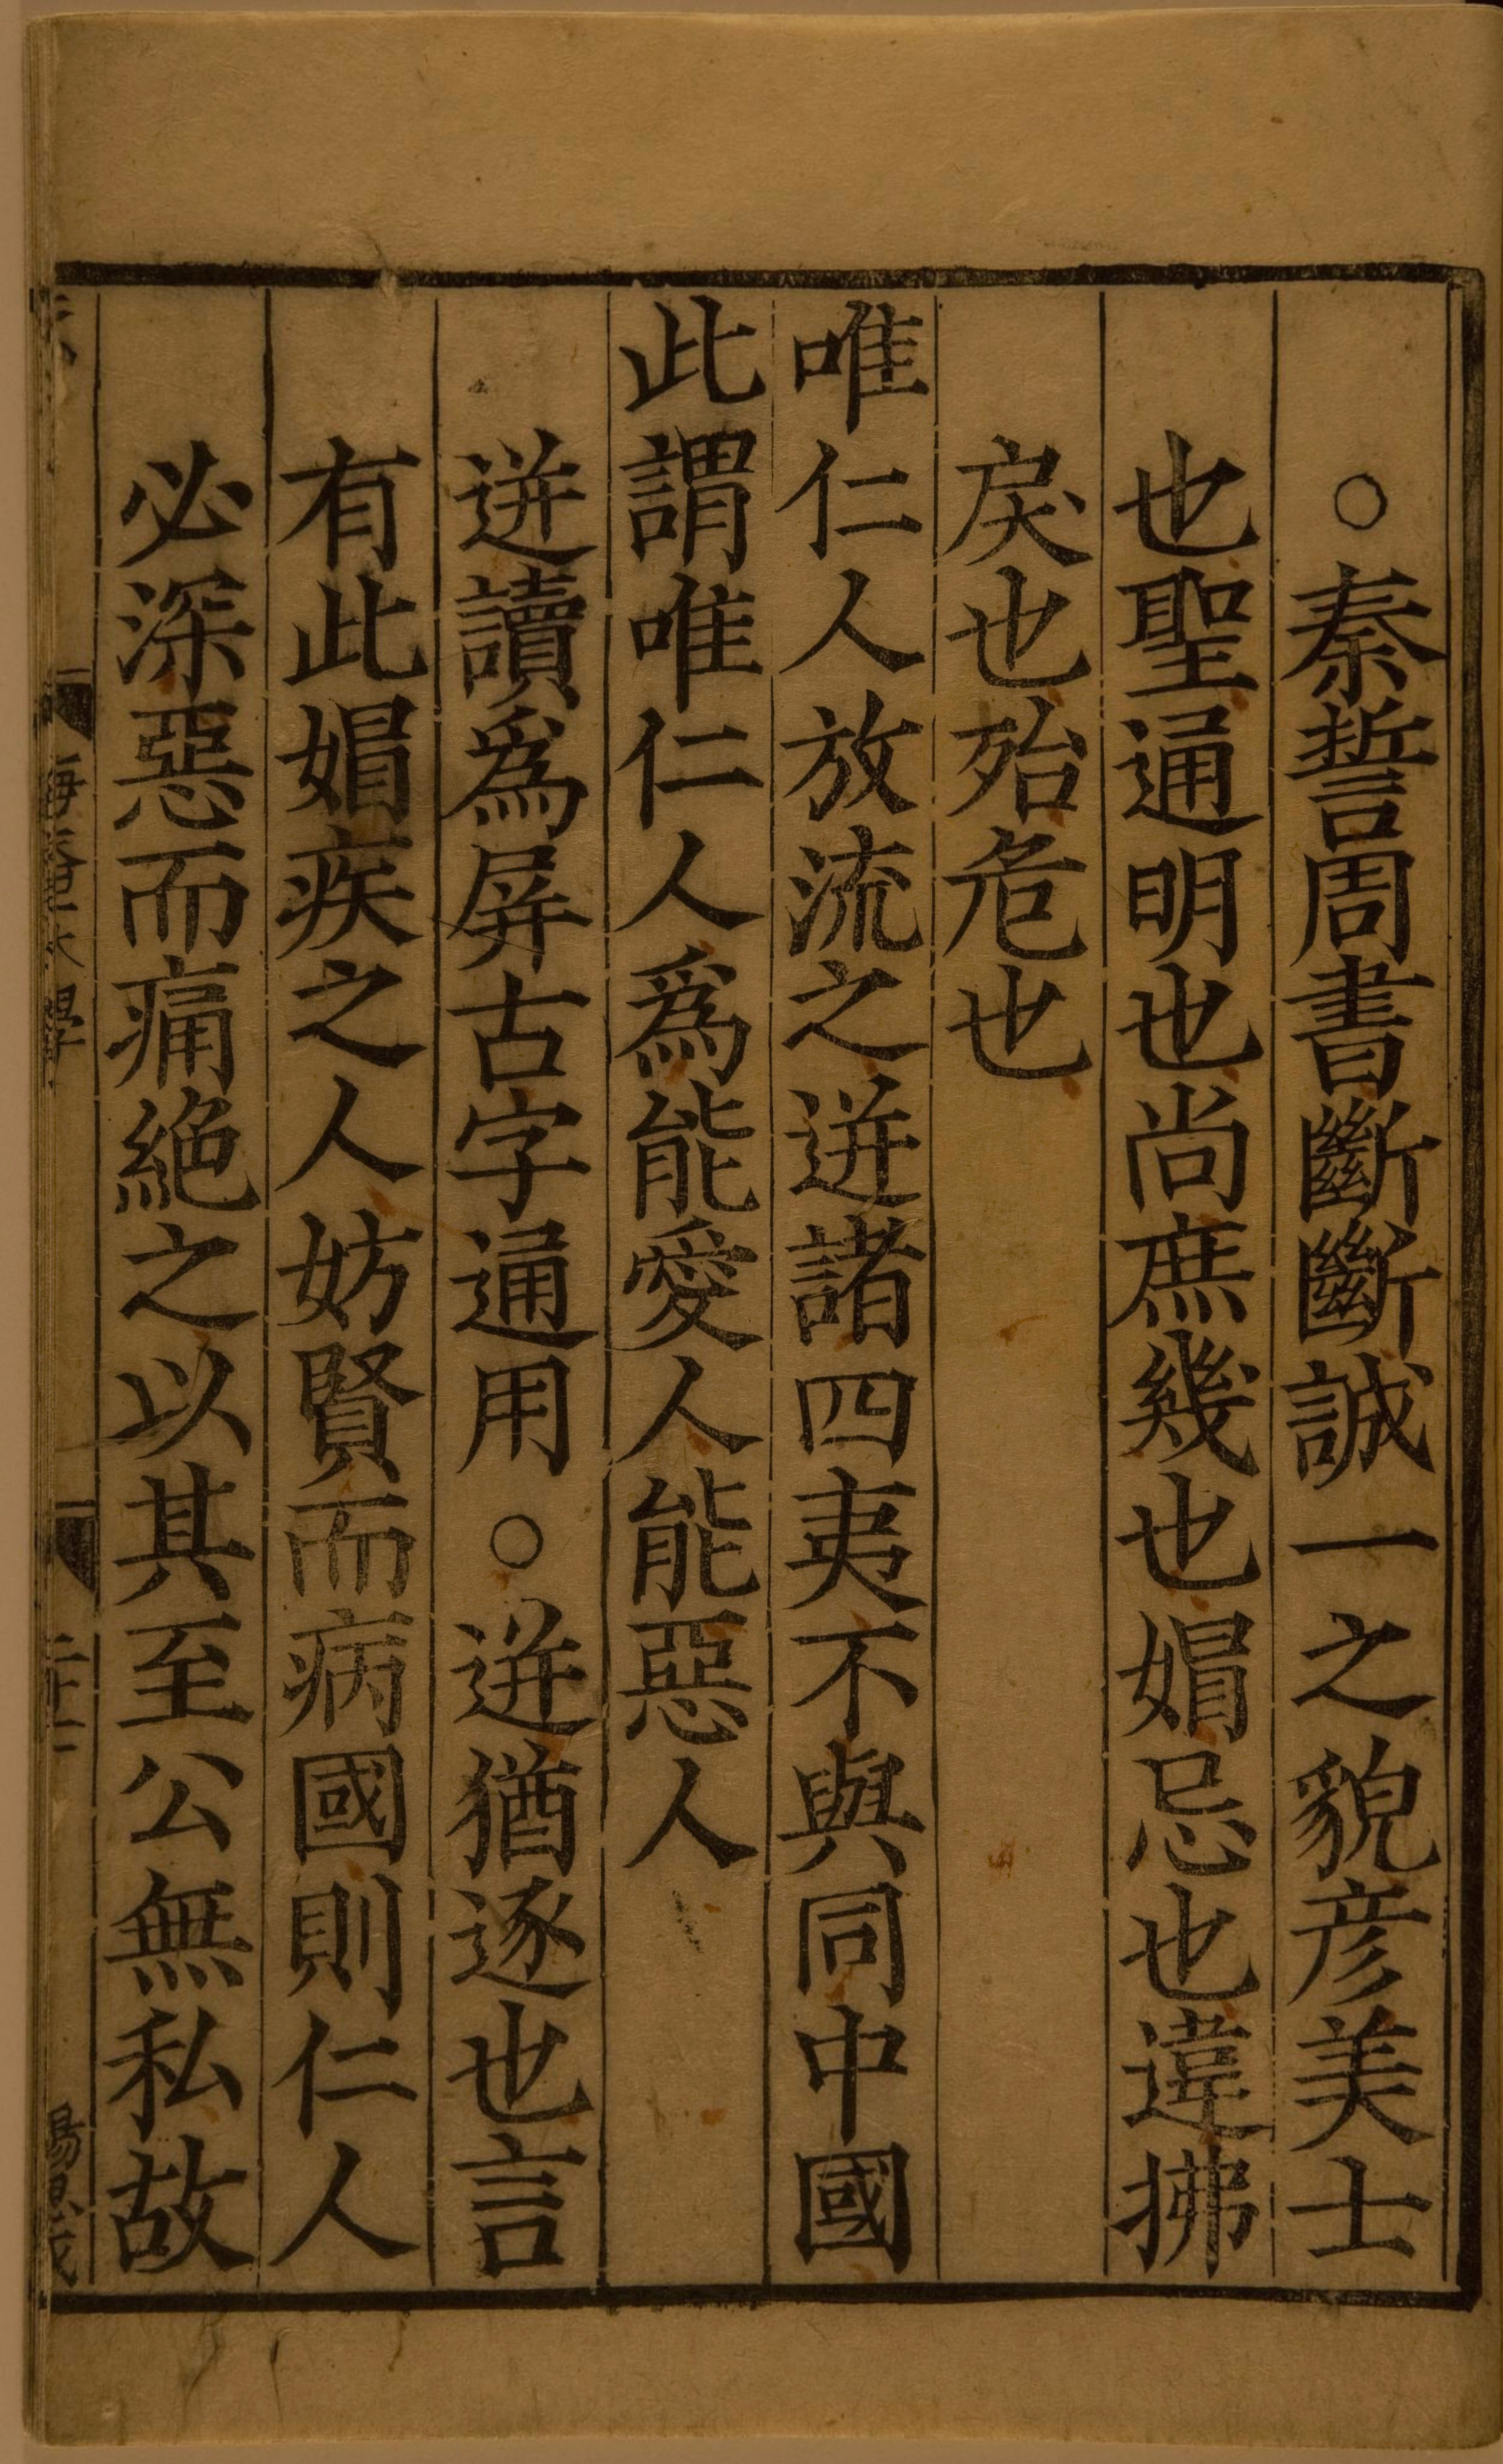 ○秦誓周書斷斷誠一之貌彦美士
也聖通明也尚庶幾也媢忌也違拂
戾也殆危也
唯仁人放流之迸諸四夷不與同中國
此謂唯仁人爲能愛人能惡人
迸讀爲屏古字通用○迸猶逐也言
有此媢疾之人妨賢而病國則仁人
必深惡而痛絶之以其至公無私故